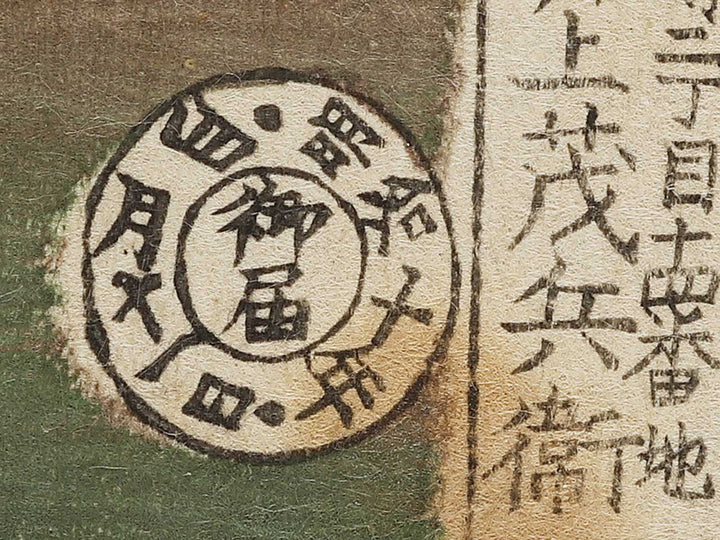 三丁目十四番地
上茂兵衛
御届
明治十年
四月
日